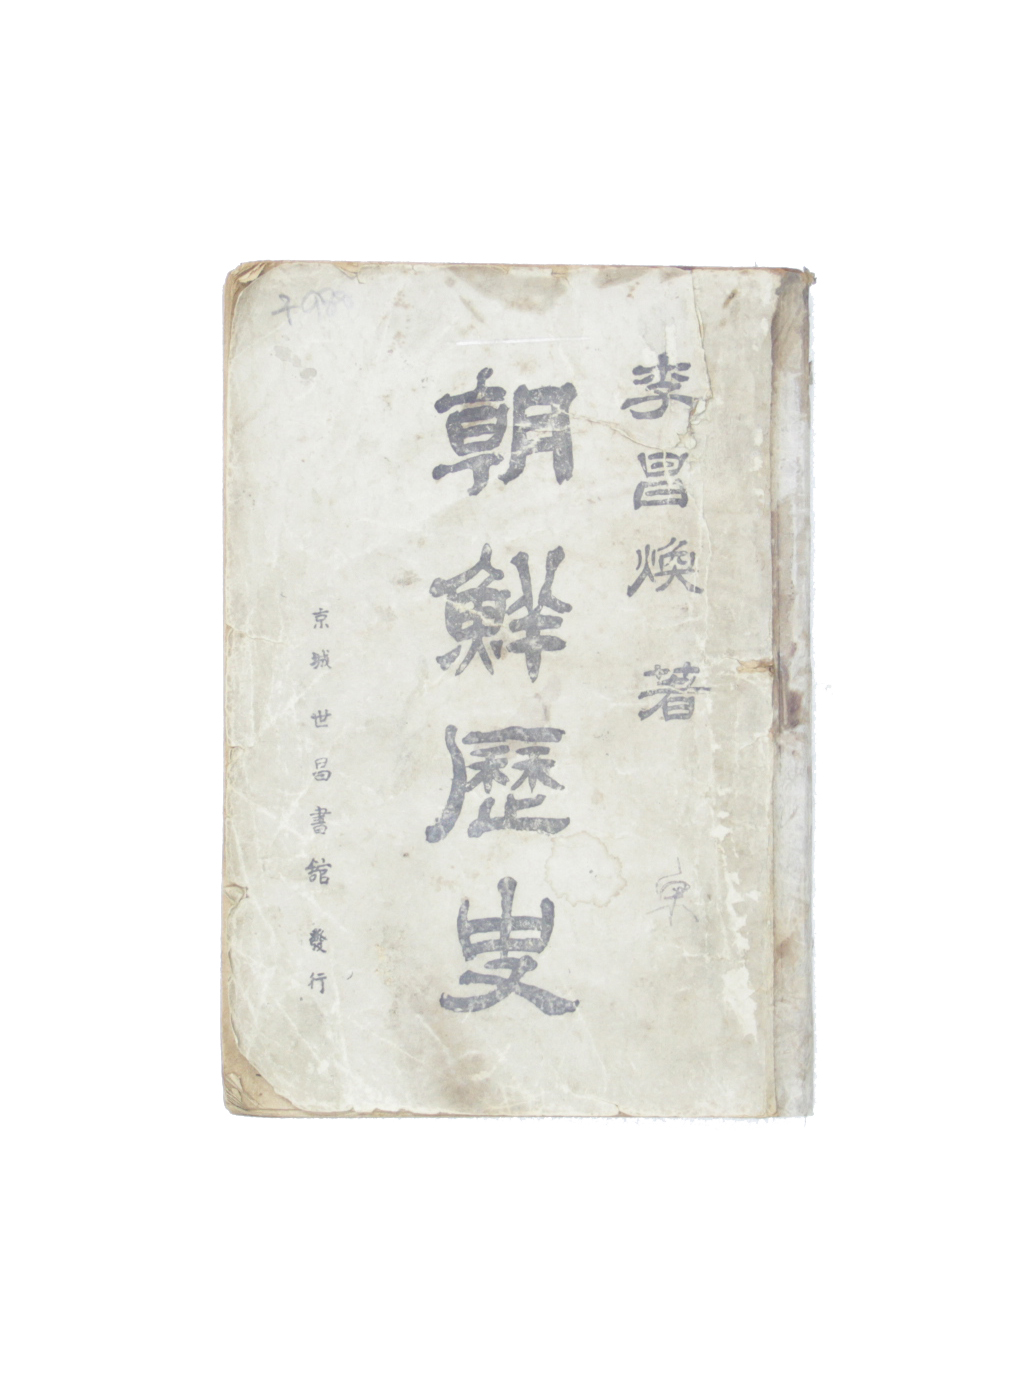 李昌煥 著
朝鮮歷史
京城 世昌書館 發行